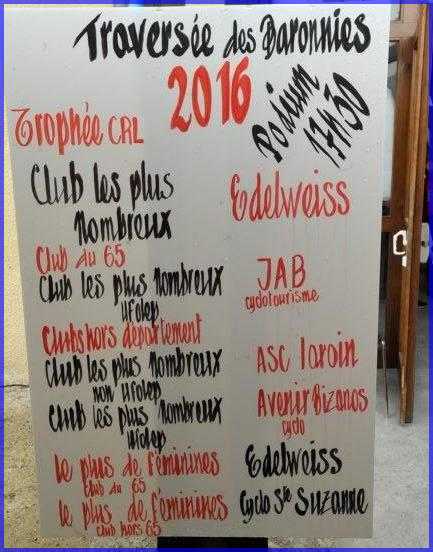 Traversée des Baronnies
2016
Podium
17H30
Trophée CRL
Club les plus
Nombreux
Edelweiss
Club du 65
Club les plus Nombreux
Ufolep
JAB
cyclotourisme
Clubs hors département
Club les plus Nombreux
non Ufolep
ASC Laroin
Club les plus Nombreux
Ufolep
Avenir Bizanos
cyclo
le plus de féminines
Club du 65
Edelweiss
le plus de féminines
club hors 65
Cyclo Ste Suzanne